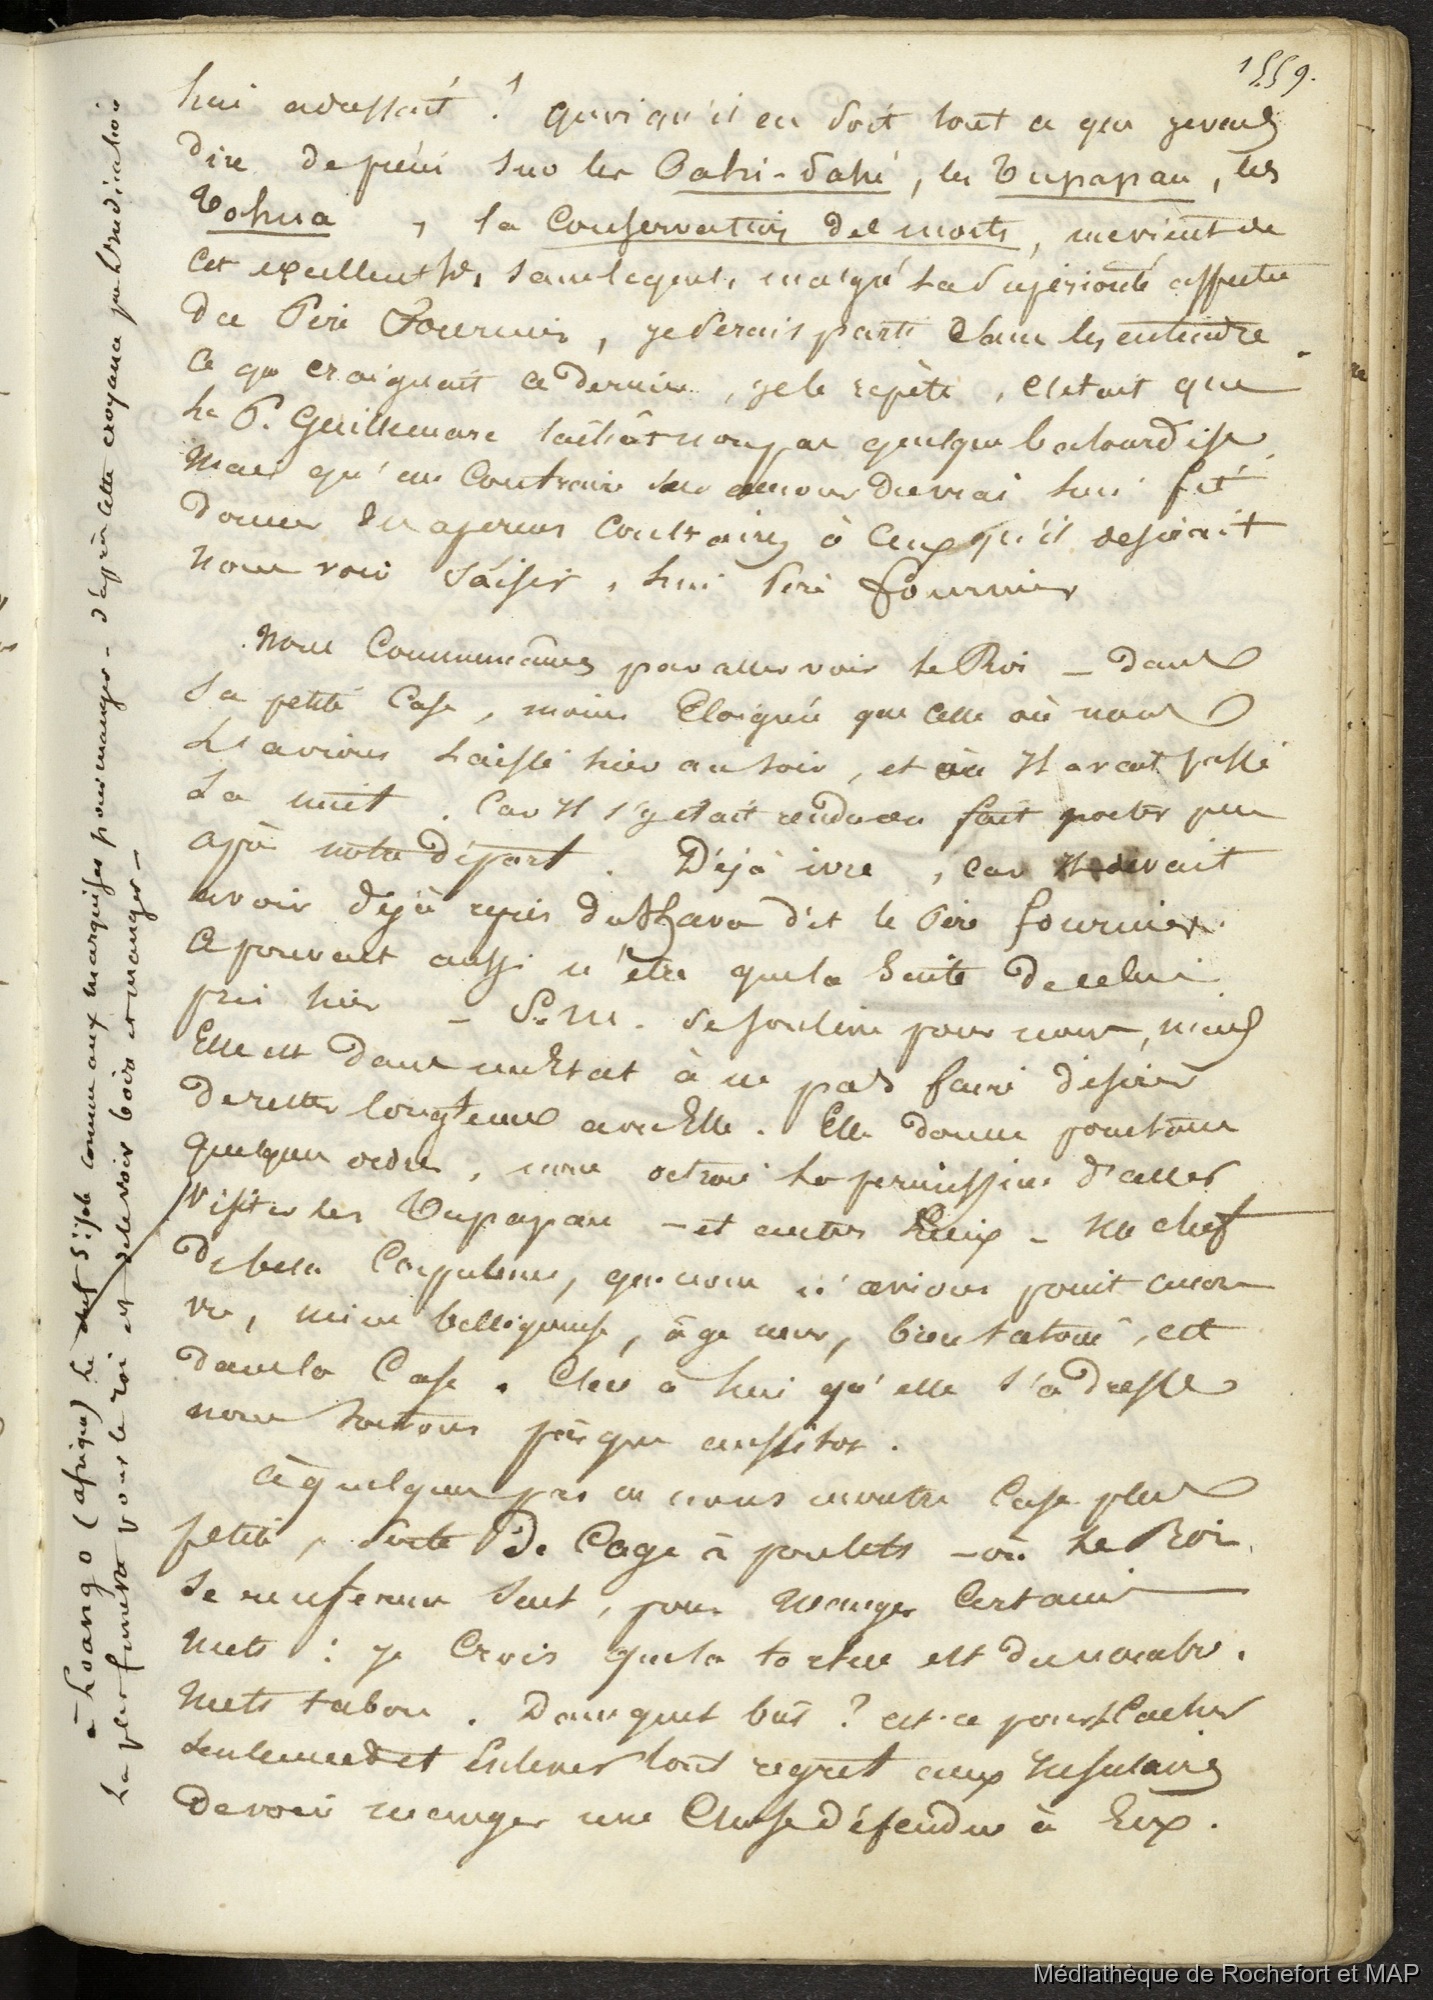 1559.
lui adressait ! quoiqu'il en soit tout ce que je viens
dire de précis sur les Pahi-Pahi, les Tupapau, les
Tohua, la Conservation des morts, me vient de
cet excellent, sans lequel, malgré la supériorité affectée
du Père Fournier, je serais parti sans les entendre.
Ce que craignait ce dernier, je le répète, c'était que
le P. Guillemare lachât non pas quelque balourdise,
mais qu'au contraire son amour du vrai lui fit
donner des aperçus contraires à ceux qu'il desirait
nous voir saisir, lui Père fournier
Nous Commençames par aller voir le Roi – dans
sa petite Case, moins Eloignée que celle où nous
L'avions Laissé hier au soir, et où Il avait passé
La nuit. Car Il s'y était rendu ou fait porter peu
après notre départ. Déjà ivre, car Il devait
avoir déjà repris du Kava dit le Père fournier.
Ce pouvait aussi n'être que la Suite de celui
pris hier – S. M. se soulève pour nous, mais
Elle est dans un Etat à ne pas faire désirer
de rester longtems avec Elle. Elle donne pourtant
quelques ordres, nous octroie la permission d'aller
Visiter les Tupapau – et autres Lieux – Un chef
de belle Corpulence, que nous n'avions point encore
vu, mine belliqueuse, âge mur, bien tatoué, est
dans la Case. C'est à lui qu'elle s'adresse
nous sortons presque aussitot.
à quelques pas on nous montre Case plus
petite, sorte de Cage à poulets – où Le Roi
se renferme seul, pour manger Certains
mets : je Crois que la tortue est du nombre.
Mets tabou. Dans quel but ? est-ce pour se Cacher
seulement et Enlever tout regret aux Insulaires
de voir manger une Chose défendue à Eux.
à Loango (afrique) le comme aux marquises pour manger – d'après cette croyance par
La plus funeste pour le roi est de le voir boire et manger –
Médiathèque de Rochefort et MAP